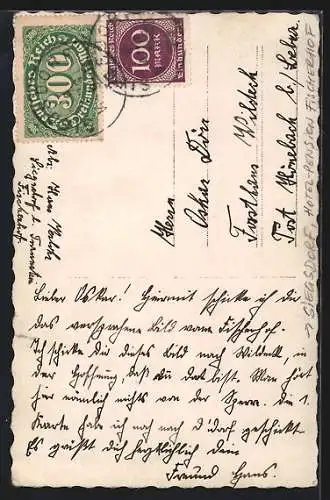 Deutsches Reich
300
Deutsches Reich
100
MARK
Herrn
Oskar Dörr
Forsthaus Wildeck
Post Hönebach b/ Bebra
Abs. Hans
Siegsdorf b. Traunstein
Fischerhof
→ SIEGSDORF, HOTEL-PENSION FISCHERHOF
Lieber Oskar! Hiermit schicke ich dir
das versprochene Bild vom Fischerhof.
Ich schicke dir dieses Bild nach Wildeck, in
der Hoffnung, daß du dort bist. Man hört
hier nämlich nichts von der Sperre. Die 1.
Karte habe ich noch nach D'dorf geschickt
Es grüßt dich herzlichst dein
Freund Hans.